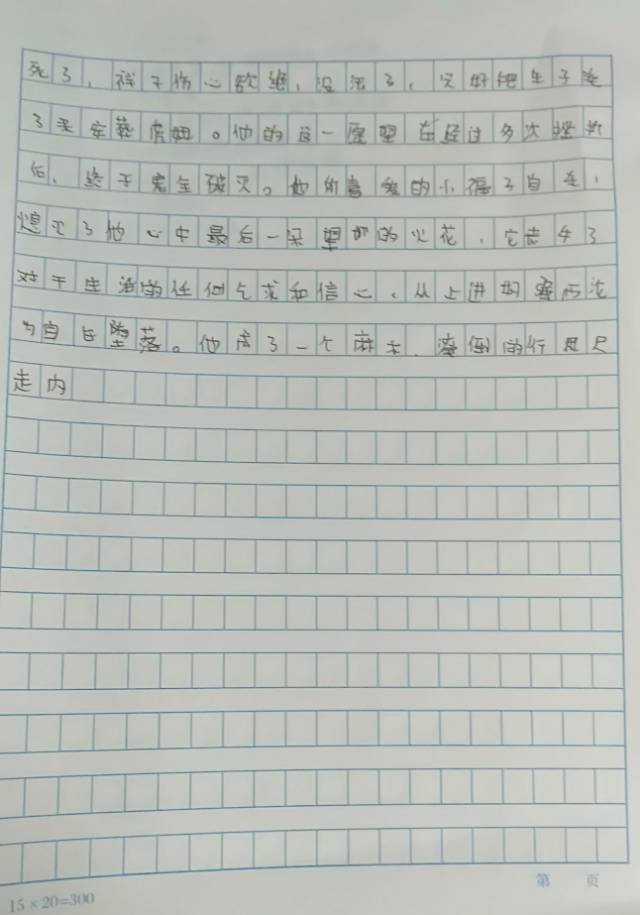 死了，祥子伤心欲绝，没法了，只好把车子卖
了来安葬虎妞。他的这一愿望在经过多次挫折
后，终于完全破灭。他所喜爱的小福子自
熄灭了他心中最后一朵的火花，它丧失了
对于生活的任何乞求和信心，从上进好强而沦
为自甘堕落。他成了一个麻木、潦倒的行尸
走肉
第 页
15×20=300